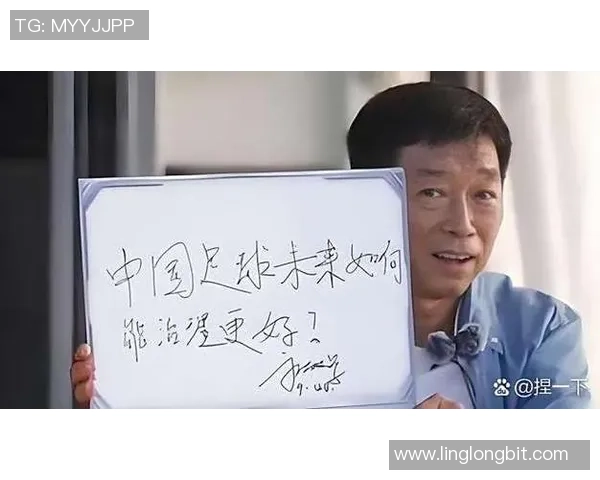 TG: MYYJJPP
中国足球未来如何
能治理更好？
@捏一下
www.linglongbit.com